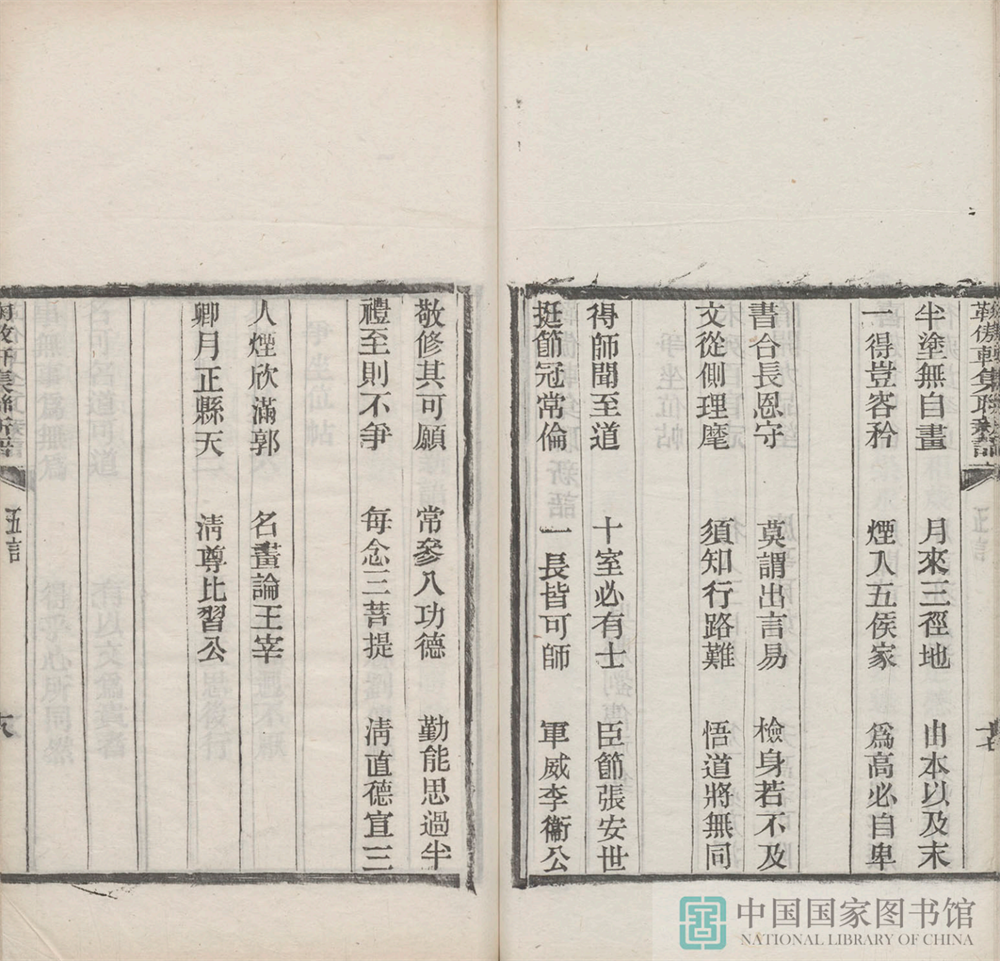 半塗無自畫　月來三徑地　由本以及末
一得豈容矜　煙入五侯家　為高必自卑
書合長恩守　莫謂出言易　檢身若不及
文從側理麾　須知行路難　悟道將無同
得師聞至道　十室必有士　臣節張安世
挺節冠常倫　一長皆可師　軍威李衞公
敬修其可願　常參八功德　勤能思過半
禮至則不爭　每念三菩提　清直德宣三
人煙欣滿郭　名畫論王宰
卿月正縣天　清尊比習公
五言
中国国家图书馆
NATIONAL LIBRARY OF CHINA